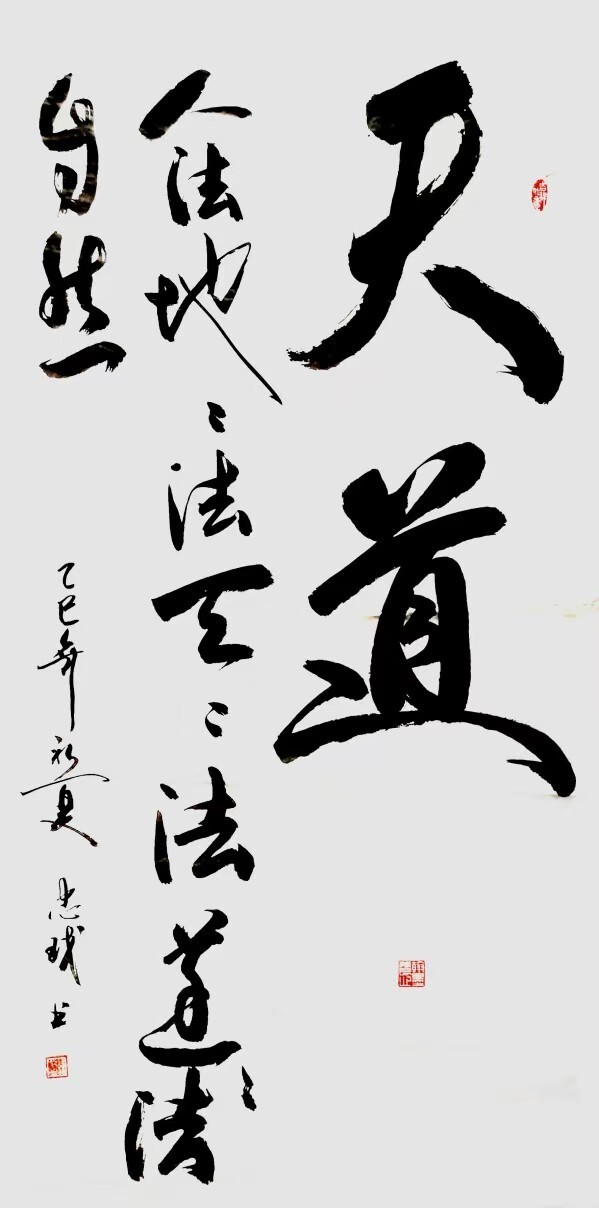 天道
人法地〻法天〻法道〻法
自然
乙巳年初夏 忠球书